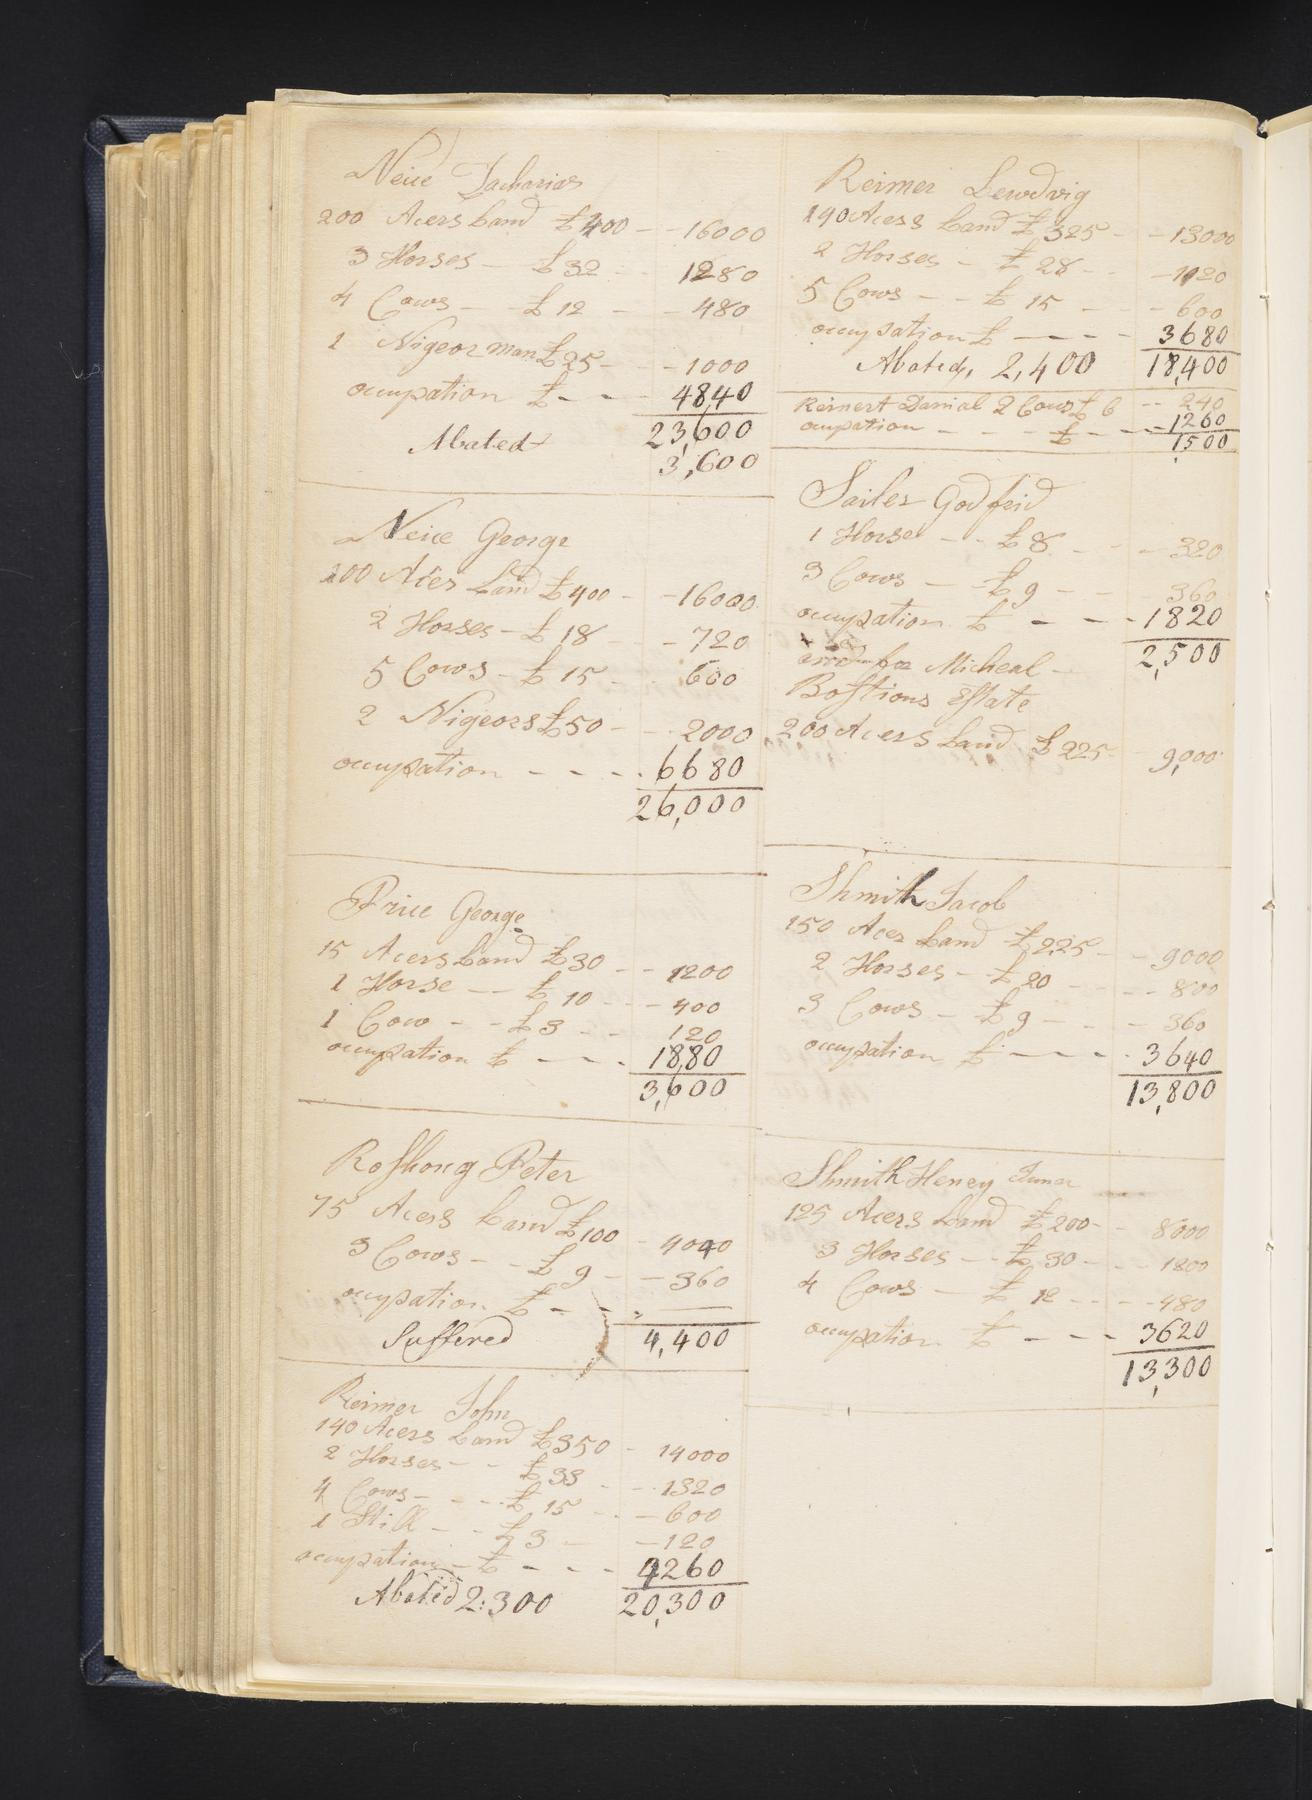 Neice Zacharias
200 Acers Land £400 - - 16000
3 Horses - £32 - - 1280
4 Cows - - £12 - - 480
1 Nigeor man £25 - - 1000
ocupation £ - - 4840
23,600
Abated
3,600
Neice George
200 Aces Land £400 - - 16000
2 Horses - £18 - 720
5 Cows - £15 - 600
2 Nigeors £50 - - 2000
occupation - - - 6680
26,000
Price George
15 Acers Land £30 - - 1200
1 Horse - - £10 - - 400
1 Cow - - £3 - - 120
occupation £ - - - 1880
3,600
Roshong Peter
75 Acers Land £100 - 4000
3 Cows - - £9 - - 360
ocupation £ - -
Suffered 4,400
Reimer John
140 Acers Land £350 - 14000
2 Horses - - £33 - - 1320
4 Cows - - - £15 - - 600
1 Still - - £3 - - 120
occupation - £ - - - 4260
Abated 2:300 20,300
Reimer Lewdvig
190 Acers Land £325 - - 13000
2 Horses - £28 - - 1120
5 Cows - - £15 - - 600
occupation £ - - - 3680
Abated, 2,400 18,400
Reinert Danial 2 Cows £6 - - 240
ocupation - - - £ - - - 1260
1500
Sailer Godfrid
1 Horse - - £8 - - - 320
3 Cows - £9 - - 360
occupation £ - - - 1820
2,500
and for Micheal -
Bostions Estate
200 Acers Land £225 9,000
Shmith Jacob
150 Acer Land £225 - - 9000
2 Horses - - £20 - - - 800
3 Cows - £9 - - - 360
occupation £ - - - 3640
13,800
Shmith Heney Juner
125 Acers Land £200 - - 8000
3 Horses - - £30 - - - 1200
4 Cows - £12 - - - 480
occupation £ - - - 3620
13,300